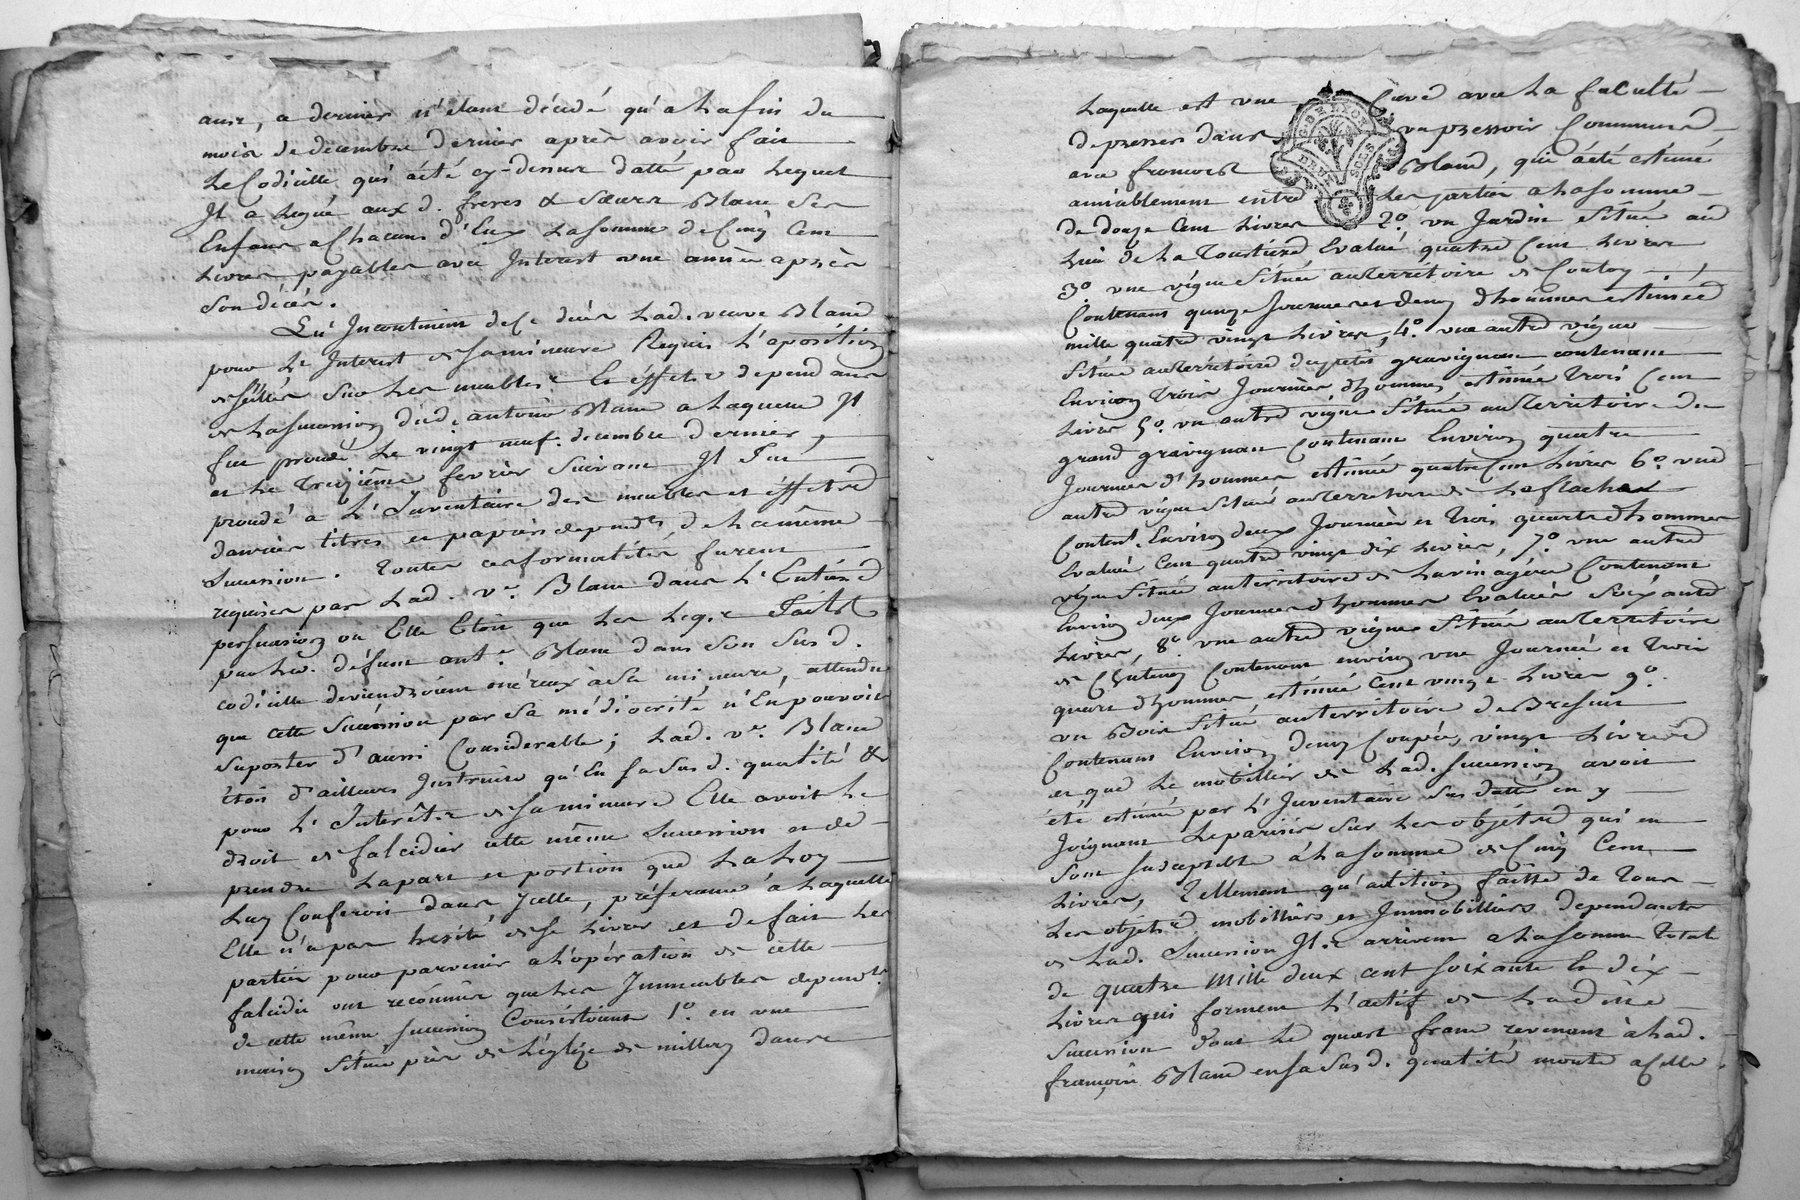 ans, a dernier n'étant décédé qu'a la fin du
mois de decembre dernier après avoir fait
Le Codicille qui a été cy-dessus datté par lequel
Il a legué aux d. freres & sœurs Blanc ses
Enfans a Chacun d'Eux la somme de Cinq Cent
Livres payables avec Interest une année après
son décès.
Qu'Incontinent de Ce décès Lad. veuve Blanc
pour L'Interest de sa mineure Requit L'aposition
de scellés sur Les meubles & effets dependans
de la succession dud. antoine Blanc a laquelle Il
fut procedé Le vingt neuf decembre dernier,
et Le Treizième fevrier suivant Il fut
procedé a L'Inventaire des meubles et effets
danrées titres et papiers depend.ts de la même
succession. Toutes ces formalités furent
requises par Lad. v.e Blanc dans L'Entière
persuasion ou Elle Etoit que les Legs faits
par led. défunt ant.e Blanc dans son susd.
codicille deviendroient onéreux à sa mineure, attendu
que cette succession par sa médiocrité n'En pouvoit
suporter d'aussi Considerable; Lad. v.e Blanc
étoit d'ailleurs Instruite qu'En sa susd. qualité &
pour L'Interêt de sa mineure Elle avoit Le
droit de falcidier cette même succession et de
prendre la part et portion que La Loy
Luy Conferoit dans Icelle, préferance à laquelle
Elle n'a pas hesité de se Livrer et de fait Les
parties pour parvenir a l'opération de cette
falcidie ont reconnus que les Immeubles depend.ts
de cette même succession Consistoient 1.o en une
maison située près de L'église de millery dans
Laquelle est une Cuve avec la faculté
de presser dans un pressoir Commun
avec francois Blanc, qui a été estimé
amiablement entre Les parties a la somme
de douze Cent Livres 2.o un Jardin situé au
Lieu de La Tourtière Evalué quatre Cent Livres
3.o une vigne située au Territoire de
Contenant quinze Journées et demy d'hommes estimée
mille quatre vingt Livres, 4.o une autre vigne
située au Territoire du petit gravignan contenant
Environ Trois Journées d'hommes estimée Trois Cent
Livres 5.o une autre vigne située au Territoire du
grand gravignan Contenant Environ quatre
Journées d'hommes estimée quatre Cent Livres 6.o une
autre vigne située au Territoire de
Conten.t Environ deux Journées et Trois quarts d'hommes
Evalué Cent quatre vingt dix Livres, 7.o une autre
vigne située au territoire de Contenant
Environ deux Journées d'hommes Evaluée soixante
Livres, 8.o une autre vigne située au Territoire
de Contenant environ une Journée et Trois
quart d'hommes estimée Cent vingt Livres 9.o
un Bois situé au territoire de
Contenant Environ deux Coupées, vingt Livres
et que Le mobillier de Lad. succession avoit
été estimé par L'Inventaire sus datté en y
Joignant Le parisis sur Les objets qui en
sont susceptible à la somme de Cinq Cent
Livres, Tellement qu'adition faitte de Tous
Les objets mobilliers et Immobilliers dependants
de Lad. succession Ils arrivent a la somme Totale
de quatre mille deux cent soixante & dix
Livres qui forment L'actif de Ladite
succession dont Le quart franc revenant à lad.
françoise Blanc en sa susd. qualité monte a Celle
G. DE LYON
DEUX SOLS